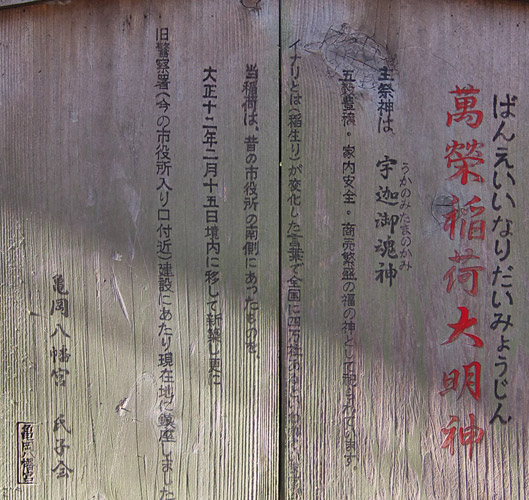 ばんえいいなりだいみょうじん
萬榮稲荷大明神
うかのみたまのかみ
主祭神は、宇迦御魂神
五穀豊穣・家内安全・商売繁盛の福の神として祀られています。
イナリとは(稲生り)が変化した言葉で全国に四万社あるといわれています
当稲荷は、昔の市役所の南側にあったものを、
大正十二年二月十五日境内に移して新築し更に
旧警察署(今の市役所入り口付近)建設にあたり現在地に鎮座しました
亀岡八幡宮 氏子会
亀岡八幡宮